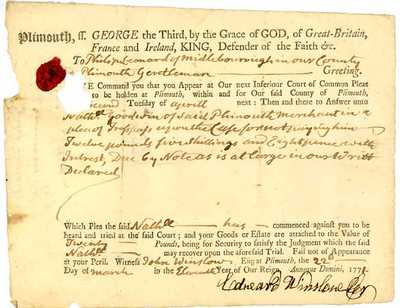 Plimouth, ss. GEORGE the Third, by the Grace of GOD, of Great-Britain,
France and Ireland, KING, Defender of the Faith &c.
To Philip Leonard of Midleborough in our County
Plimouth Gentleman Greeting.
WE Command you that you Appear at Our next Inferior Court of Common Pleas
to be holden at Plimouth, within and for Our said County of Plimouth
second Tuesday of Aprill next: Then and there to Answer unto
Nathll Goodwin of Said Plimouth merchant in a
plea of Trespass upon the Case for not paying him
Twelve pounds five shillings and Eight pence with
Interest, Due by Note as is at large in our Writt
Declared
Which Plea the said Nathll has commenced against you to be
heard and tried at the said Court; and your Goods or Estate are attached to the Value of
Twenty Pounds, being for Security to satisfy the Judgment which the said
Nathll may recover upon the aforesaid Trial. Fail not of Appearance
at your Peril. Witness John Winslow Esq; at Plimouth, the 22d
Day of March in the Eleventh Year of Our Reign, Annoque Domini, 177
Edward Winslow Cler